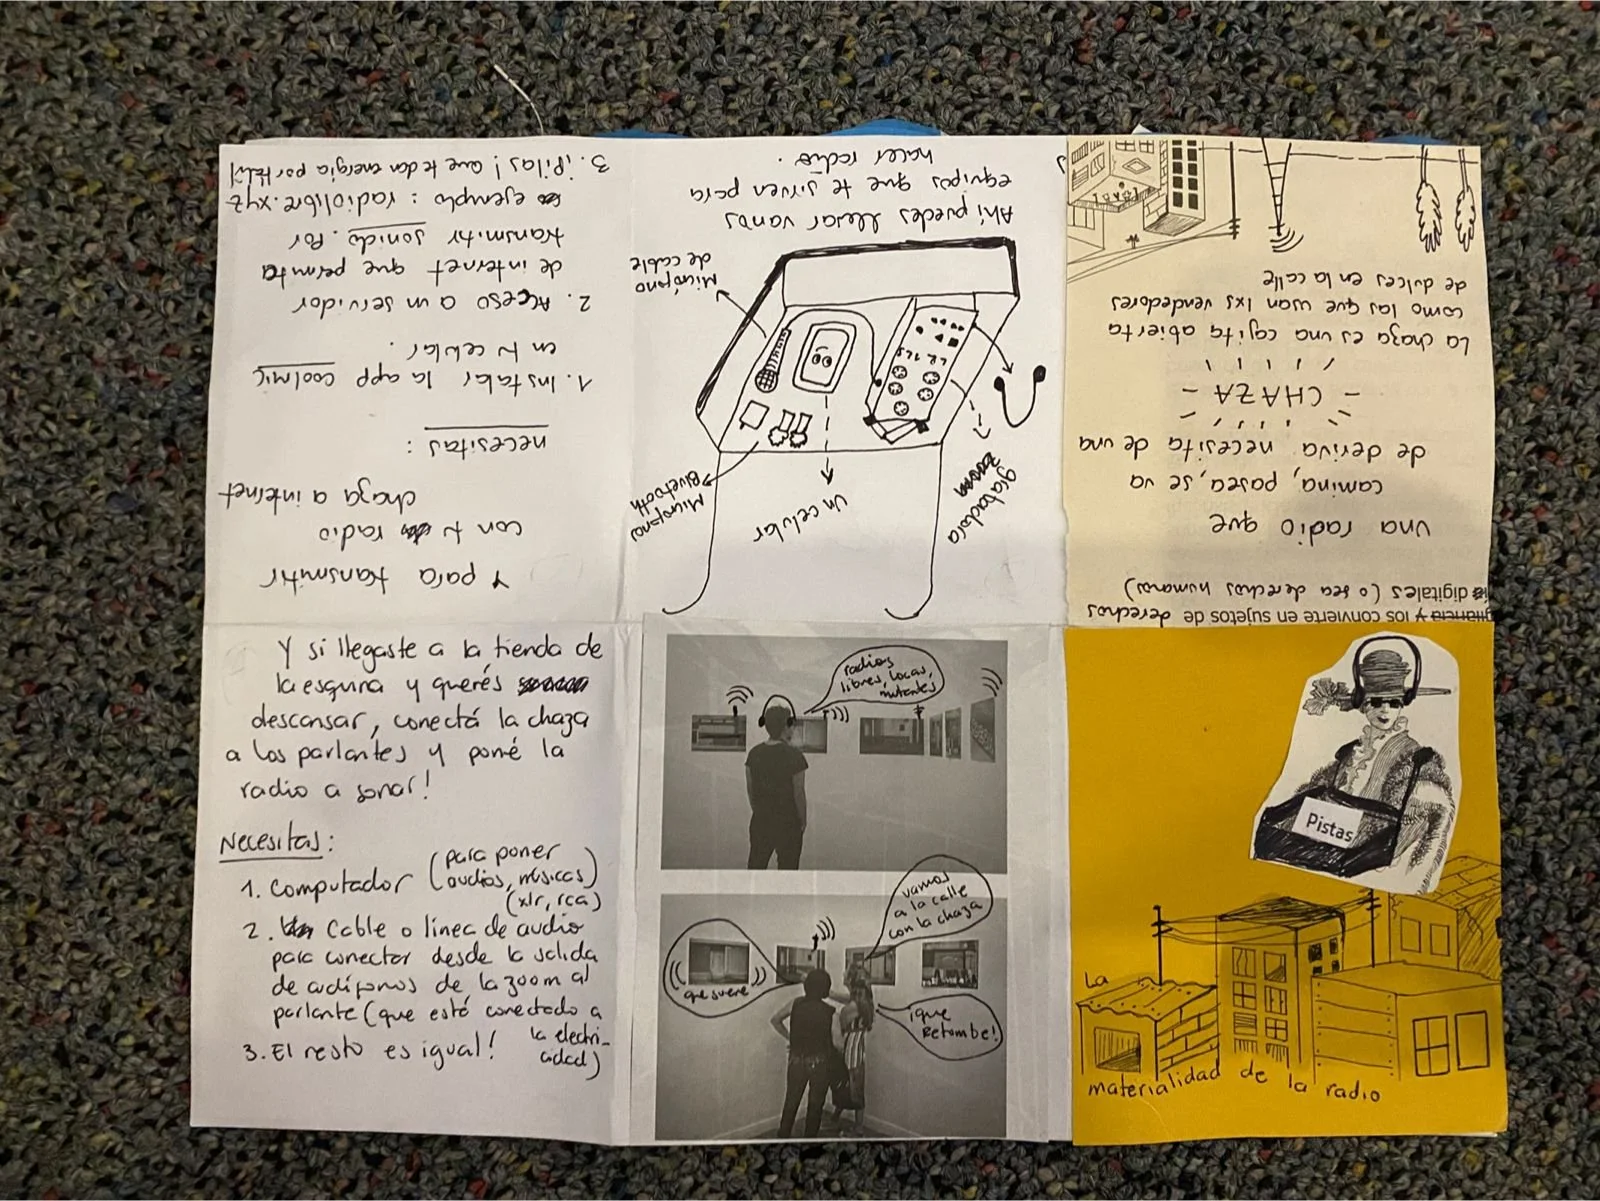 La
materialidad de la radio
Pistas
gilancia y los convierte en sujetos de derechos
digitales (o sea derechos humanos)
una radio que
camina, pasea, se va
de deriva necesita de una
- CHAZA -
La chaza es una cajita abierta
como las que usan lxs vendedores
de dulces en la calle
Micrófono
Bluetooth
un celular
grabadora
zoom
LR 1 2 S
Micrófono
de cable
Ahí puedes llevar varios
equipos que te sirven para
hacer radio.
Y para transmitir
con tu radio
chaza a internet
necesitas:
1. Instalar la app coolmic
en tu celular.
2. Acceso a un servidor
de internet que permita
transmitir sonido. Por
ejemplo: radiolibre.xyz
3. ¡Pilas! Que te dan energía portátil
Y si llegaste a la tienda de
la esquina y querés
descansar, conectá la chaza
a los parlantes y poné la
radio a sonar!
Necesitas:
1. Computador (para poner
audios, músicas)
(xlr, rca)
2. Cable o línea de audio
para conectar desde la salida
de audífonos de la zoom al
parlante (que esté conectado a
la electri-
cidad)
3. El resto es igual!
radios
libres, locas,
mutantes
vamos
a la calle
con la chaza
que suene
¡que
Retumbe!